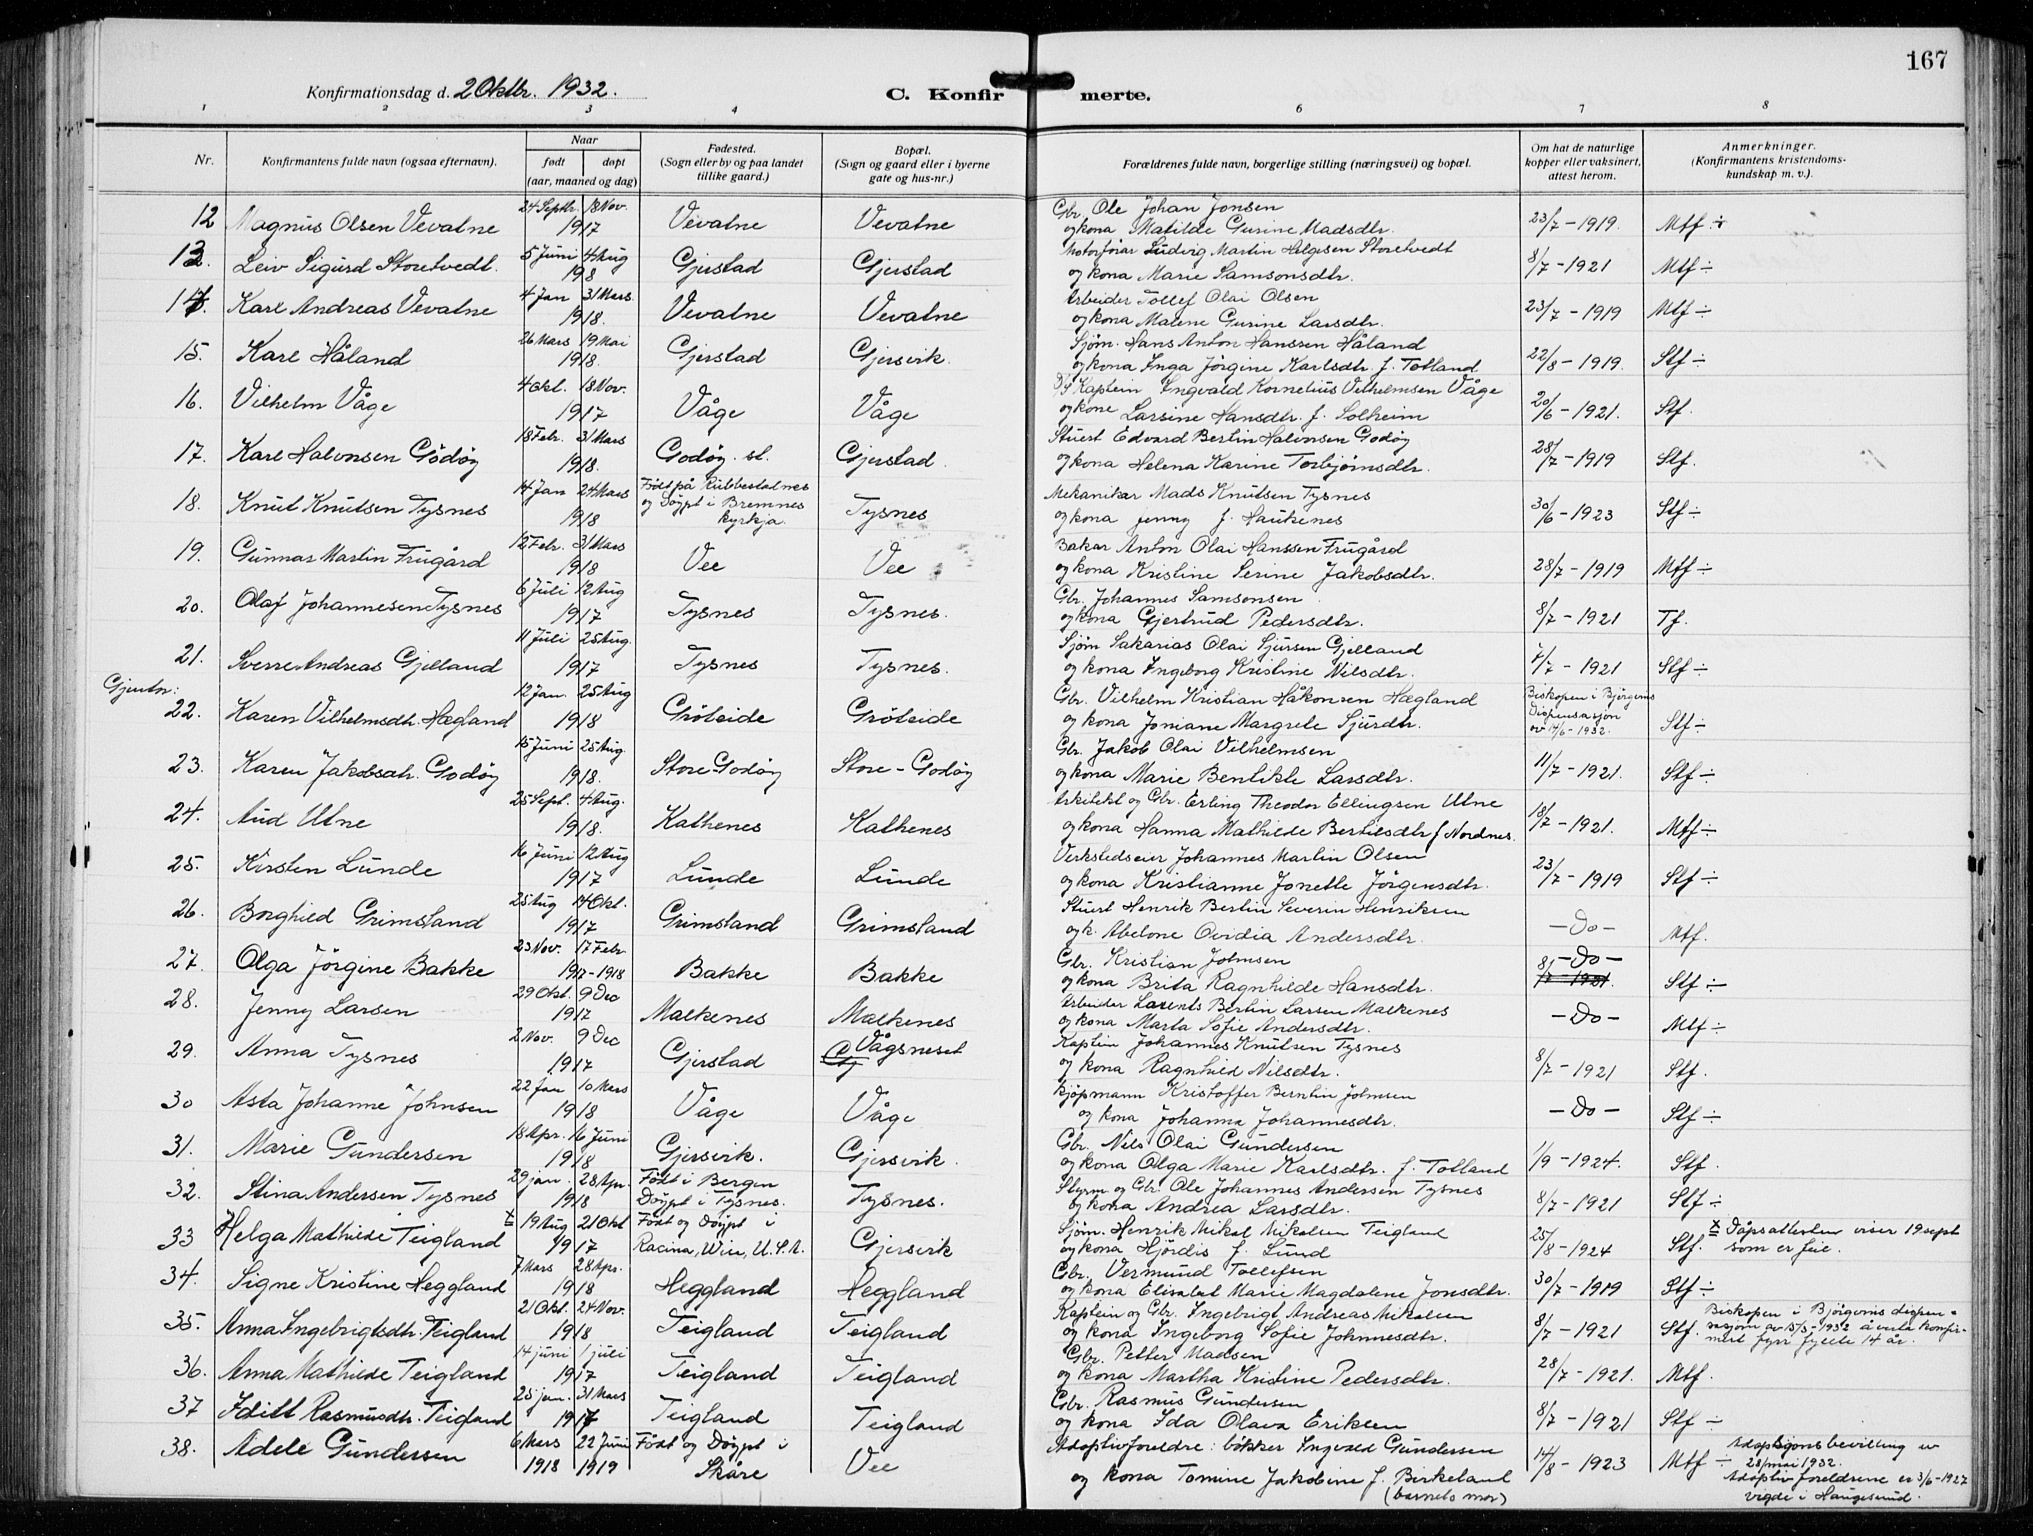 167
Konfirmationsdag d. 2 Oktbr. 1932.
C. Konfirmerte.
1 2 3 4 5 6 7 8
Nr. Konfirmantens fulde navn (ogsaa efternavn). Naar født døpt (aar, maaned og dag) Fødested. (Sogn eller by og paa landet tillike gaard.) Bopæl. (Sogn og gaard eller i byerne gate og hus-nr.) Forældrenes fulde navn, borgerlige stilling (næringsvei) og bopæl. Om hat de naturlige kopper eller vaksinert, attest herom. Anmerkninger. (Konfirmantens kristendomskundskap m. v.).
12 Magnus Olsen Vevatne 24 Septbr. 18 Nov. 1917 Vevatne Vevatne Gbr. Ole Johan Jonsen
og kona Matilde Gurine Madsdtr. 23/7 - 1919. Mtf ÷
13. Leiv Sigurd Storetvedt. 5 Juni 4 Aug 1918 Gjerstad Gjerstad Motorførar Ludvig Martin Helgesen Storetvedt
og kona Marie Samsonsdtr. 8/7 - 1921 Mtf ÷
14. Karl Andreas Vevatne 4 Jan 31 Mars. 1918. Vevatne Vevatne Arbeider Tollef Olai Olsen
og kona Malene Gurine Larsdtr. 23/7 - 1919 Mtf ÷
15. Karl Håland 26 Mars 19 Mai 1918. Gjerstad Gjersvik. Sjøm. Hans Anton Hanssen Håland
og kona Inga Jørgine Karlsdtr. f. Totland 22/8 - 1919. Stf ÷
16. Vilhelm Våge 4 Okt. 18 Nov. 1917 Våge Våge D/S Kaptein Ingvald Kornelius Vilhelmsen Våge
og kone Larsine Hansdtr. f. Solheim 20/6 - 1921. Stf.
17. Karl Halvorsen Godøy 18 Febr. 31 Mars 1918. Godøy. st. Gjerstad. Stuert Edvard Bertin Halvorsen Godøy
og kona Helena Karine Torbjørnsdtr. 28/7 - 1919 Stf.
18. Knut Knutsen Tysnes 14 Jan 24 Mars 1918 Født på Rubbestadnes
og Døypt i Bremnes
kyrkja. Tysnes Mekanikar Mads Knutsen Tysnes
og kona Jenny f. Haukenes 30/6 - 1923 Stf ÷
19. Gunnar Martin Frugård 12 Febr. 31 Mars 1918 Vee Vee Bakar Anton Olai Hanssen Frugård
og kona Kristine Serine Jakobsdtr. 28/7 - 1919 Mtf ÷
20. Olaf Johannesen Tysnes 6 Juli 12 Aug 1917 Tysnes Tysnes. Gbr. Johannes Samsonsen
og kona Gjertrud Pedersdtr. 8/7 - 1921 Tf.
21. Sverre Andreas Gjelland 11 Juli 25 Aug. 1917 Tysnes Tysnes. Sjøm Sakarias Olai Sjursen Gjelland
og kona Ingeborg Kristine Nilsdtr. 7/7 - 1921 Stf ÷
Gjentor:
22. Karen Vilhelmsdtr. Hægland 12 Jan. 25 Aug 1918 Grøteide Grøteide Gbr. Vilhelm Kristian Håkonsen Hægland
og kona Joniane Margrete Sjurdtr. Biskopen i Bjørgvins
Dispensasjon
av 14/6 - 1932. Stf ÷
23. Karen Jakobsdtr. Godøy 15 Juni 25 Aug. 1918. Store Godøy Store - Godøy Gbr. Jakob Olai Vilhelmsen
og kona Marie Bentikte Larsdtr. 11/7 - 1921. Stf ÷
24. Aud Utne 25 Sept. 4 Aug. 1918. Kathenes Kathenes Arkitekt og Gbr. Erling Theodor Ellingsen Utne
og kona Hanna Mathilde Bertilsdtr f Nordnes. 18/7 - 1921. Mtf ÷
25. Kirsten Lunde 16 Juni 12 Aug 1917 Lunde Lunde Verkstedseier Johannes Martin Olsen
og kona Kristianne Jonette Jørgensdtr. 23/7 - 1919 Stf ÷
26. Borghild Grimsland 25 Aug 14 Okt. 1917 Grimsland Grimsland Stuert Henrik Bertin Severin Henriksen
og k. Abelone Ovidia Andersdtr. - Do - Mtf.
27. Olga Jørgine Bakke 23 Nov. 17 Febr 1917 - 1918 Bakke Bakke Gbr. Kristian Johnsen
og kona Brita Ragnhilde Hansdtr. - Do - 8/7 - 1921. Stf ÷
28. Jenny Larsen 29 Okt. 9 Dec 1917 Malkenes Malkenes Arbeider Larents Bertin Larsen Malkenes
og kona Marta Sofie Andersdtr. - Do - Mtf ÷
29. Anna Tysnes 2 Nov. 9 Dec 1917 Gjerstad Vågsneset Kaptein Johannes Knutsen Tysnes
og kona Ragnhild Nilsdtr. 8/7 - 1921 Stf.
30 Asta Johanne Johnsen 22 Jan 10 Mars 1918 Våge Våge Kjøpmann Kristoffer Berntin Johnsen
og kona Johanna Johannesdtr. - Do - Stf ÷
31. Marie Gundersen 18 Apr. 16 Juni 1918 Gjersvik. Gjersvik. Gbr. Nils Olai Gundersen
og kona Olga Marie Karlsdtr. f. Totland 1/9 - 1924. Stf.
32. Stina Andersen Tysnes 29 jan. 28 Apr. 1918 Født i Bergen
Døypt i Tysnes. Tysnes. Styrm og Gbr. Ole Johannes Andersen Tysnes
og kona Andrea Larsdtr. 8/7 - 1921 Stf ÷
33 Helga Mathilde Teigland x 19 Aug 21 Okt 1917 Født og Døypt i
Racina, Win, U.S.A. Gjersvik Sjøm. Henrik Mikal Mikalsen Teigland
og kona Hjørdis f. Lund 25/8 - 1924 Stf. x Dåpsattesten viser 19 sept
som er feie.
34. Signe Kristine Heggland 7 Mars 28 Apr. 1918 Heggland Heggland Gbr. Vermund Tollefsen
og kona Elisabet Marie Magdalene Jonsdtr. 30/7 - 1919 Stf ÷
35. Anna Ingebrigtsdtr. Teigland 21 Okt. 24 Nov. 1918 Teigland Teigland Kaptein og Gbr. Ingebrigt Andreas Mikalsen
og kona Ingeborg Sofie Johnnesdtr. 8/7 - 1921 Stf. Biskopen i Bjørgvins dispen-
sasjon av 15/3 - 1932 å verta konfir-
mert fyrr fyllte 14 år.
36. Anna Mathilde Teigland 14 juni 1 juli 1917 Teigland Teigland Gbr. Petter Madsen
og kona Martha Kristine Pedersdtr. 28/7 - 1921. Mtf.
37 Iditt Rasmusdtr. Teigland 25 jan. 31 Mars 1917 Teigland Teigland Gbr. Rasmus Gundersen
og kona Ida Olava Eriksen 8/7 - 1921 Stf ÷
38. Adele Gundersen 6 Mars 22 Juni 1918 1919 Født og Døypt i
Skåre Vee Adoptivforeldre: bøkker Ingvald Gundersen
og kona Tomine Jakobine f. Birkeland
(barnets mor) 14/8 - 1923 Mtf ÷ Adopsjonsbevilling av
28 mai 1932.
Adoptivforeldrene er 3/6 - 1927
vigde i Haugesund.